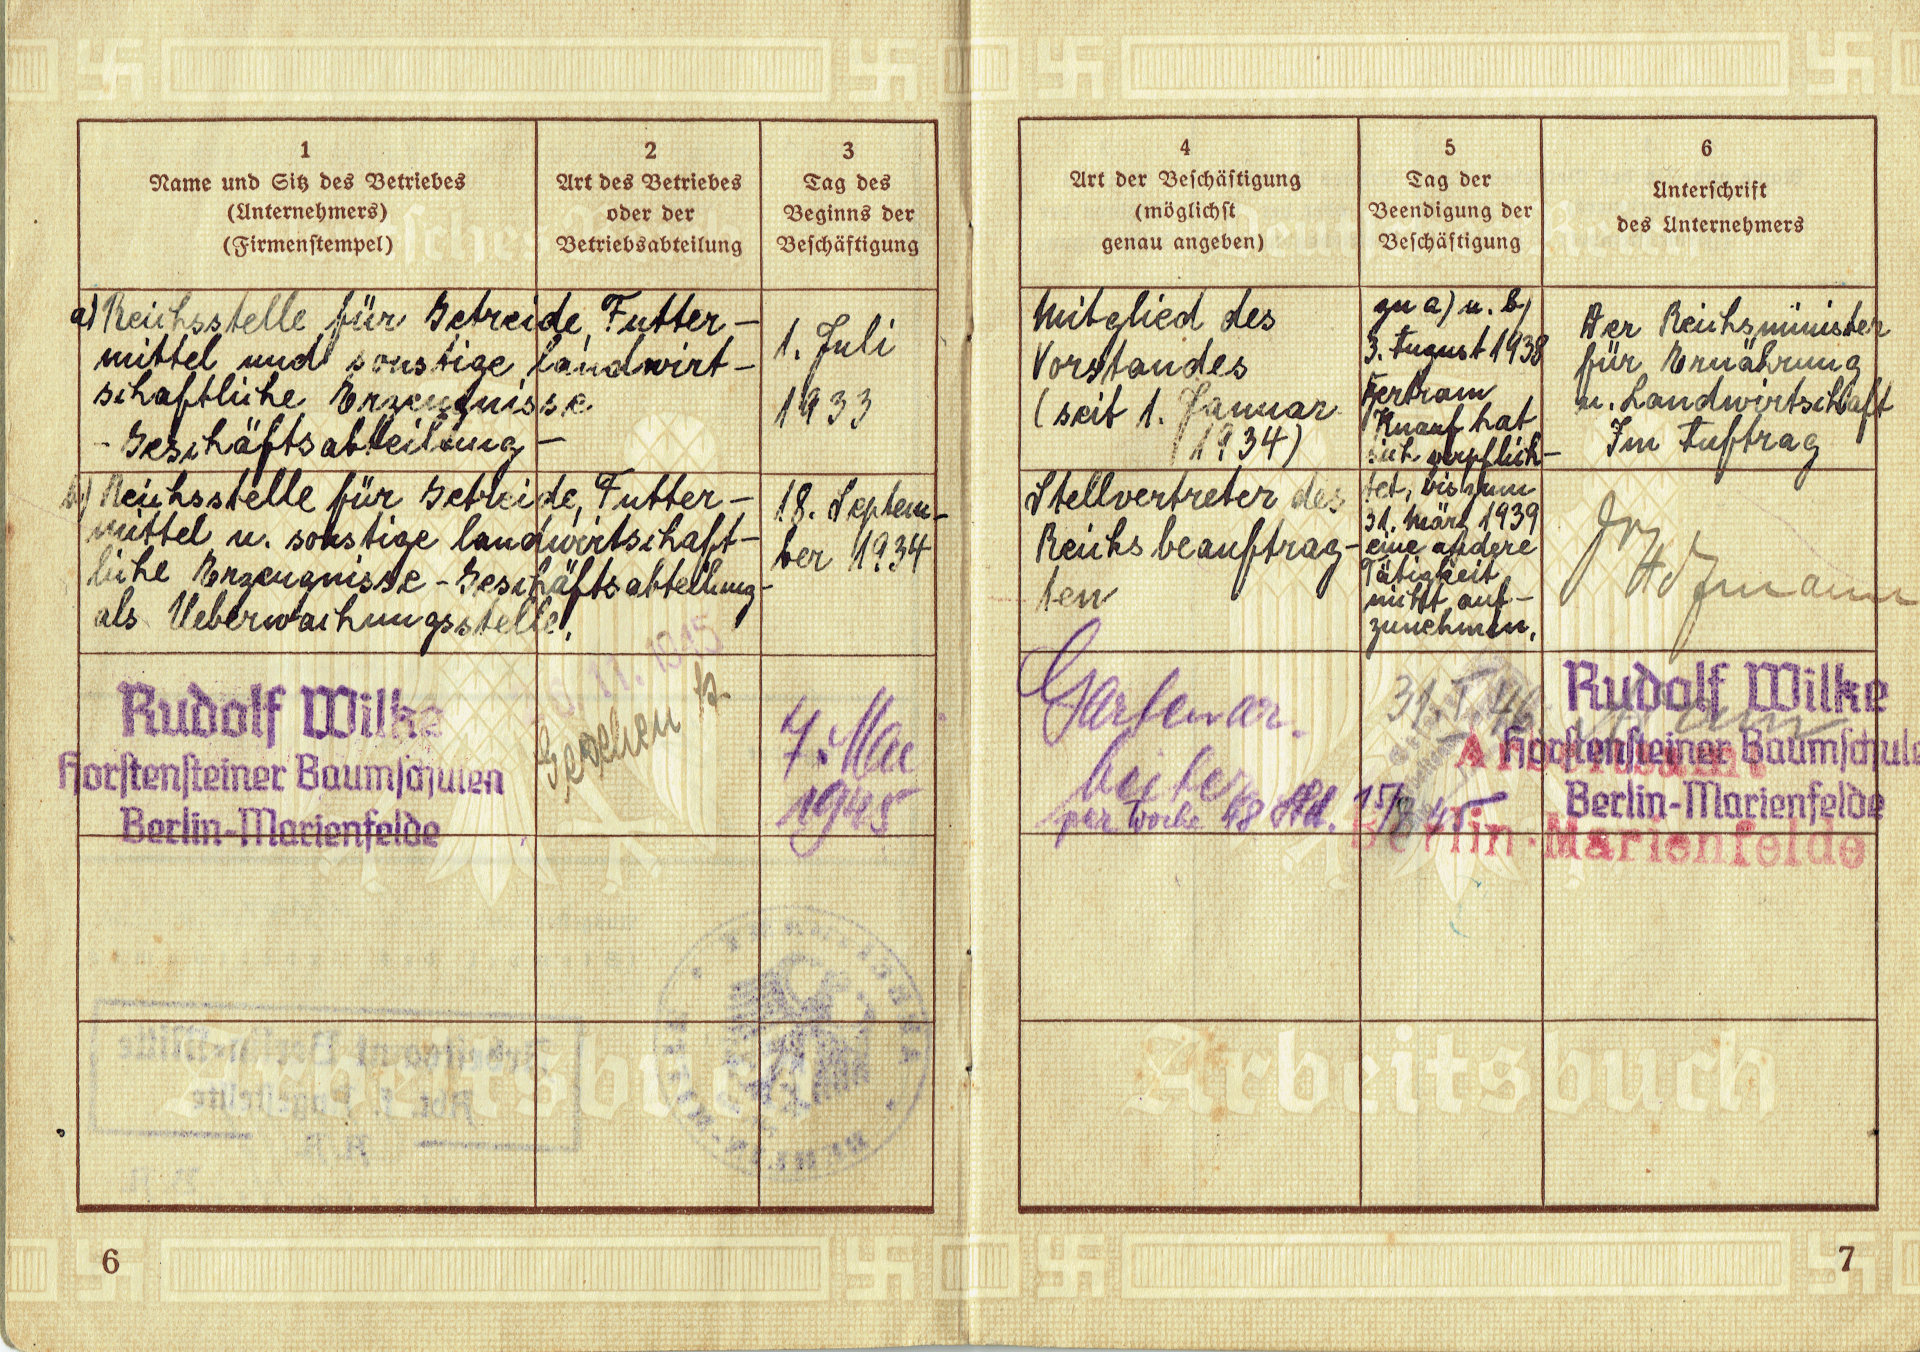 1
Name und Sitz des Betriebes
(Unternehmers)
(Firmenstempel)
2
Art des Betriebes
oder der
Betriebsabteilung
3
Tag des
Beginns der
Beschäftigung
a) Reichsstelle für Getreide, Futter-
mittel und sonstige landwirt-
schaftliche Erzeugnisse
- Geschäftsabteilung -
1. Juli
1933
b) Reichsstelle für Getreide, Futter-
mittel u. sonstige landwirtschaft-
liche Erzeugnisse - Geschäftsabteilung -
als Ueberwachungsstelle.
18. Septem-
ber 1934
Rudolf Wilke
Horstensteiner Baumschulen
Berlin-Marienfelde
11. 1945
Gesehen
7. Mai
1945
Arbeitsamt Berlin-Mitte
Arbeitsbuch
6
4
Art der Beschäftigung
(möglichst
genau angeben)
5
Tag der
Beendigung der
Beschäftigung
6
Unterschrift
des Unternehmers
Mitglied des
Vorstandes
(seit 1. Januar
1934)
zu a) u. b)
3. August 1938
Bertram
Knauf hat
sich verpflich-
tet, bis zum
31. März 1939
eine andere
Tätigkeit
nicht auf-
zunehmen.
Der Reichsminister
für Ernährung
u. Landwirtschaft
Im Auftrag
Stellvertreter des
Reichsbeauftrag-
ten
Gartenar-
beiter
per Woche 48 Std.
31. I. 46
15/8 45
Rudolf Wilke
Horstensteiner Baumschulen
Berlin-Marienfelde
Arbeitsamt
Berlin-Marienfelde
Arbeitsbuch
7